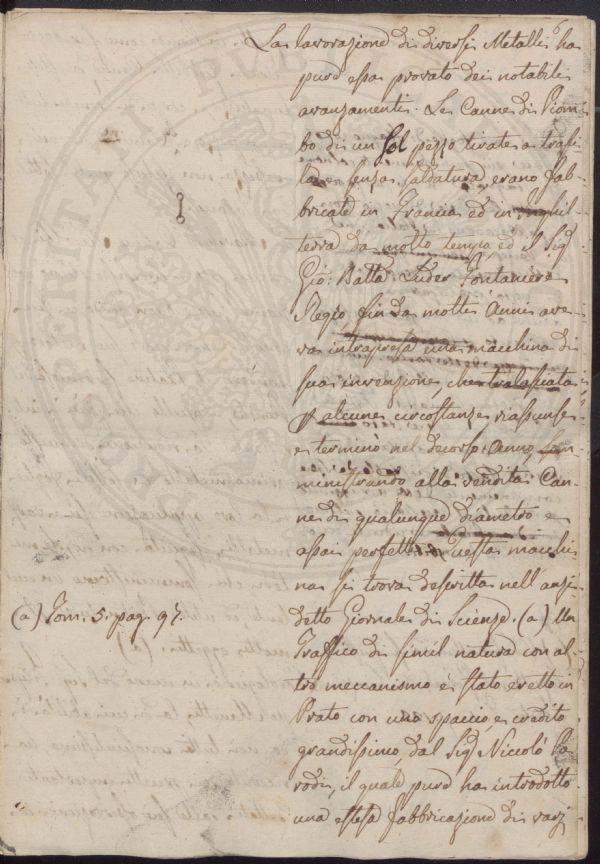 6
La lavorazione di diversi Metalli ha
pure essa provato dei notabili
avanzamenti. Le Canne di Piom-
bo di un Sol pezzo tirate a trafi-
la e senza saldatura erano fab-
bricate in Francia ed in Inghil-
terra da molto tempo, ed il Sig.
Gio: Batta: Luder Fontaniere
Regio, fin da molti Anni ave-
va intrapresa una macchina di
sua invenzione che tralasciata
p alcune circostanze riassunse
e terminò nel decorso Anno, som-
ministrando alla vendita Can-
ne di qualunque diametro e
assai perfette. Questa macchi
na si trova descritta nell'anzi
detto Giornale di Scienze. (a) Un
(a) Tom. 5. pag. 97.
Traffico di simil natura con al
tro meccanismo è stato eretto in
Prato con uno spaccio e credito
grandissimo, dal Sig. Niccolò Pa
rodi, il quale pure ha introdotto
una estesa fabbricazione di varj